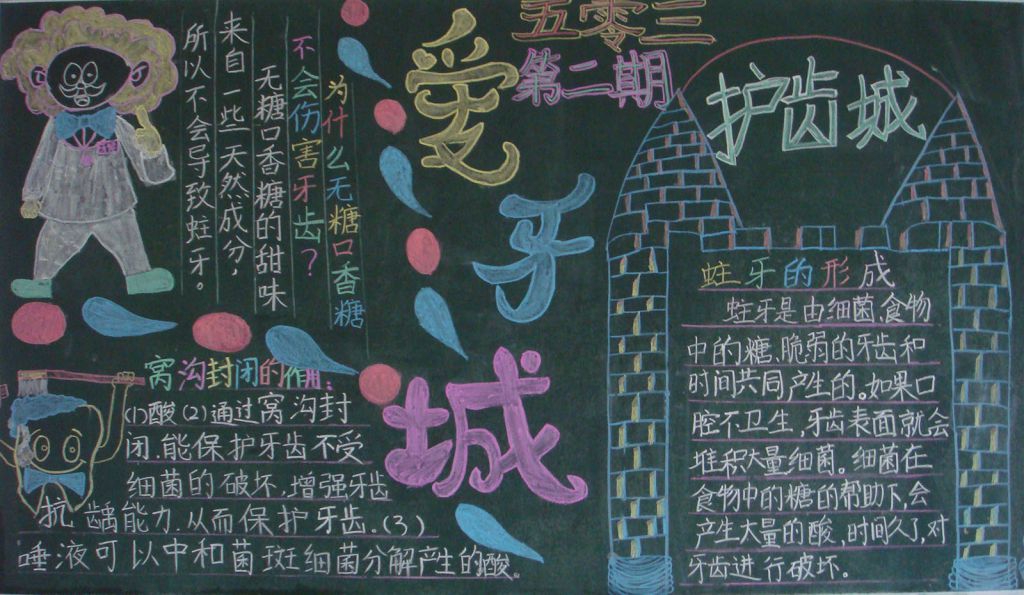 五零三
第二期
爱
牙
城
护齿城
为什么无糖口香糖
不会伤害牙齿？
无糖口香糖的甜味
来自一些天然成分，
所以不会导致蛀牙。
窝沟封闭的作用：
(1)酸(2)通过窝沟封
闭.能保护牙齿不受
细菌的破坏.增强牙齿
抗龋能力.从而保护牙齿.(3)
唾液可以中和菌斑细菌分解产生的酸。
蛀牙的形成
蛀牙是由细菌.食物
中的糖、脆弱的牙齿和
时间共同产生的。如果口
腔不卫生，牙齿表面就会
堆积大量细菌。细菌在
食物中的糖的帮助下，会
产生大量的酸，时间久了，对
牙齿进行破坏。